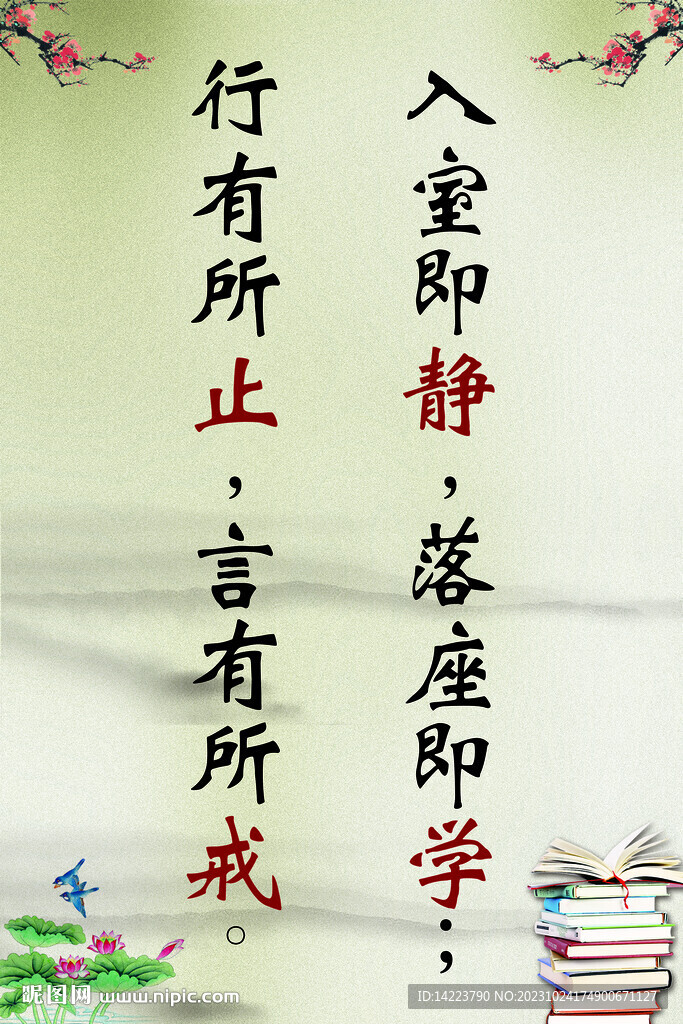 入室即静，落座即学；
行有所止，言有所戒。
昵图网 www.nipic.com
ID:14223790 NO:20231024174900671127